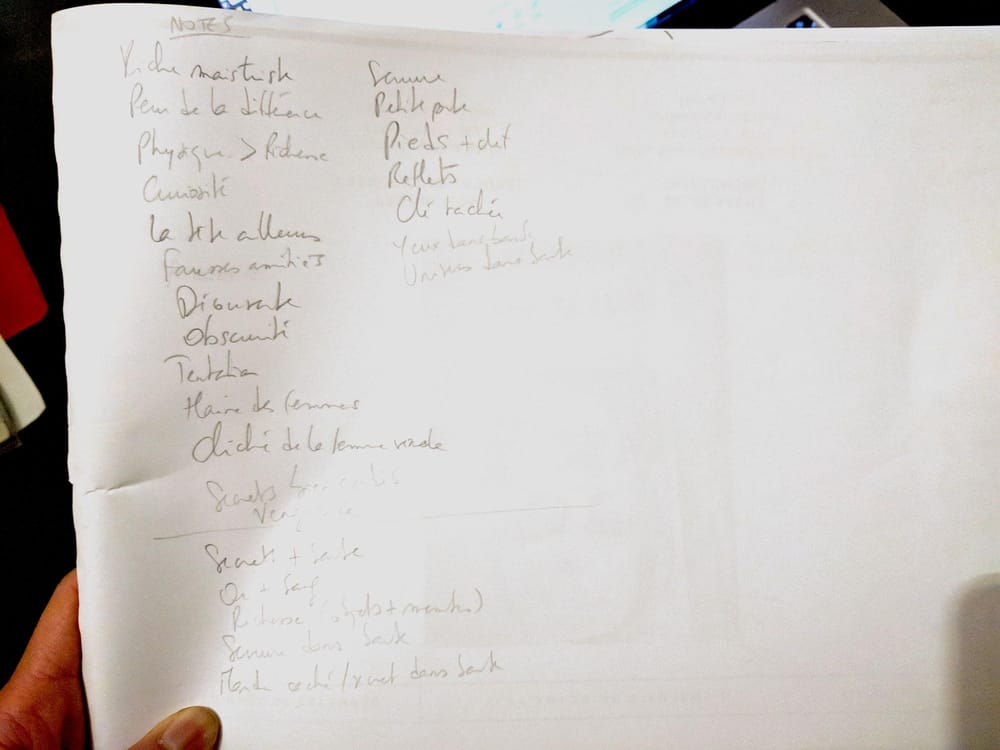 NOTES
Riche mais triste
Peur de la différence
Physique > Richesse
Curiosité
La tête ailleurs
Fausses amitiés
Discursate
Obscurité
Tentation
Haine des femmes
Cliché de la femme vénale
Secrets bien cachés
Vengeance
Secrets + barbe
Or + Sang
Richesse (objets + meubles)
Serrure dans barbe
Monde caché/secret dans barbe
Serrure
Petite porte
Pieds + clef
Reflets
Clé tachée
Yeux dans barbe
Univers dans barbe